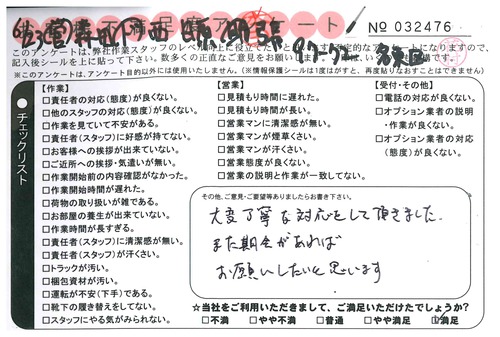 足アンケート
№ 032476
このアンケートは、弊社作業スタッフのレベル向上に役立て
記入後シールを上に貼って下さい。数多くの正直なご意見をお願い
※このアンケートは、アンケート目的以外には使用いたしません。(※情報保護シールは1度はがすと、再度貼りなおすことはできません)
チェックリスト
【作業】
□責任者の対応(態度)が良くない。
□他のスタッフの対応(態度)が良くない。
□作業を見ていて不安がある。
□責任者(スタッフ)に好感が持てない。
□お客様への挨拶が出来ていない。
□ご近所への挨拶・気遣いが無い。
□作業開始前の内容確認がなかった。
□作業開始時間が遅れた。
□荷物の取り扱いが雑である。
□お部屋の養生が出来ていない。
□作業時間が長すぎる。
□責任者(スタッフ)に清潔感が無い。
□責任者(スタッフ)が汗くさい。
□トラックが汚い。
□梱包資材が汚い。
□運転が不安(下手)である。
□靴下の履き替えをしてない。
□スタッフにやる気がみられない。
【営業】
□見積もり時間に遅れた。
□見積もり時間が長い。
□営業マンに清潔感が無い。
□営業マンが煙草くさい。
□営業マンが汗くさい。
□営業態度が良くない。
□営業の説明と作業が一致してない。
【受付・その他】
□電話の対応が良くない。
□オプション業者の説明
・作業が良くない。
□オプション業者の対応
(態度)が良くない。
その他、ご意見・ご要望等ありましたらお書き下さい。
大変丁寧な対応をして頂きました。
また機会があれば
お願いしたいと思います
☆当社をご利用いただきまして、ご満足いただけたでしょうか?
□不満 □やや不満 □普通 □やや満足 □満足